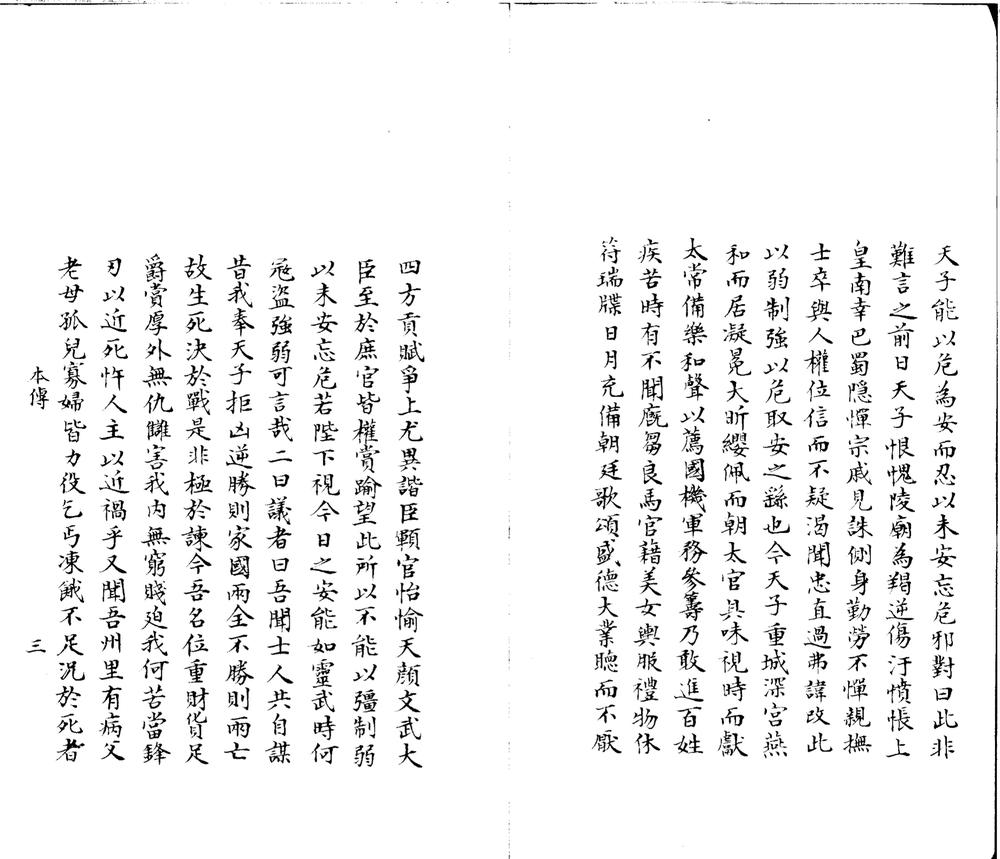 天子能以危為安而忍以未安忘危邪對曰此非
難言之前日天子恨愧陵廟為羯逆傷汙憤悵上
皇南幸巴蜀隱憚宗戚見誅側身勤勞不憚親撫
士卒與人權位信而不疑渴聞忠直過弗諱改此
以弱制強以危取安之繇也今天子重城深宮燕
和而居凝冕大昕纓佩而朝太官具味視時而獻
太常備樂和聲以薦國機軍務參籌乃敢進百姓
疾苦時有不聞廄芻良馬官藉美女輿服禮物休
符瑞牒日月充備朝廷歌頌盛德大業聽而不厭
四方貢賦爭上尤異諧臣顐官怡愉天顏文武大
臣至於庶官皆權賞踰望此所以不能以彊制弱
以未安忘危若陛下視今日之安能如靈武時何
寇盜強弱可言哉二曰議者曰吾聞士人共自謀
昔我奉天子拒凶逆勝則家國兩全不勝則兩亡
故生死決於戰是非極於諫今吾名位重財貨足
爵賞厚外無仇讎害我內無窮賤迫我何苦當鋒
刃以近死忤人主以近禍乎又聞吾州里有病父
老母孤兒寡婦皆力役乞丐凍餓不足況於死者
本傳
三